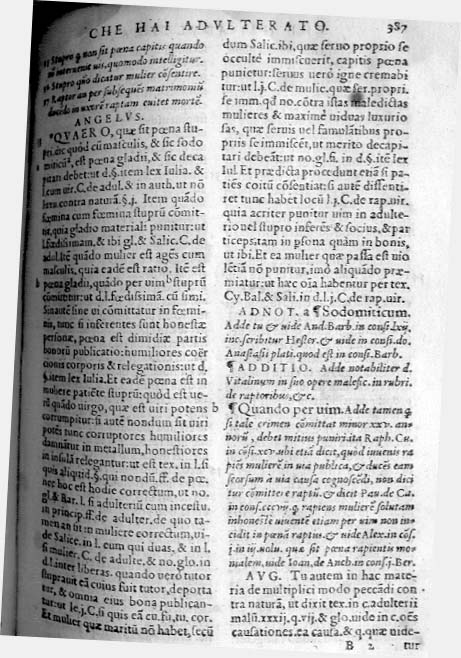 CHE HAI ADVLTERATO. 387
15 Stupro q̃ non sit pœna capitis quando
16 Stupro quò dicatur mulier cõsentire.
17 Raptor an per subseques matrimoniũ
ducẽdo in vxorẽ raptam euitet mortẽ.
ANGELVS.
QVAERO, quæ sit pœna stu-
pri. dic quòd cũ masculis, & sic sodo
miticũª, est pœna gladii, & sic deca
pitari debet: ut d. §. item lex Iulia. &
l. cum uir. C. de adul. & in auth. ut nõ
luxu. contra naturã. §. j. Item quãdo
fœmina cum fœmina stuprũ cõmit-
tit, quia gladio materiali punitur: ut
l. fœdissimam. & ibi gl. & Salic. C. de
adul. Itẽ quãdo mulier est agẽs cum
masculis, quia eadẽ est ratio. Itẽ est
b pœna gladii, quãdo per uimᵇ stuprũ
cõmittitur: ut d. l. fœdissimã. cũ simi.
Sin autẽ sine ui cõmittatur in fœmi-
nis, tunc si inferentes sunt honestæ
personæ, pœna est dimidiæ partis
bonorũ publicatio: humiliores coër
cionis corporis & relegationis: ut d.
§. item lex Iulia. Et eadẽ pœna est in
muliere patiẽte stuprũ: quòd est ue-
rũ quãdo uirgo, quæ est uiri potens
corrumpitur: si autẽ nondum sit uiri
potẽs tunc corruptores humiliores
damnãtur in metallum, honestiores
in insulã relegantur: ut est tex. in l. si
quis aliquid. §. qui nondũ. ff. de pœ.
nec hoc est hodie correctum, ut no.
gl. & Bar. l. si adulteriũ cum incestu.
in princip. ff. de adulter. de quo ta-
men an ut in muliere correctum, ui-
de Salice. in l. eum qui duas. & in l.
si mulier. C. de adulte. & no. glo. in
d. l. inter liberas. quando uerò tutor
stuprauit eã cuius fuit tutor, deporta
tur, & omnia eius bona publican-
tur: ut le. j. C. si quis eã cu. fu. tu. cor.
Et mulier quæ maritũ nõ habet, secũ
dum Salic. ibi, quæ seruo proprio se
occultè immiscuerit, capitis pœna
punietur: seruus uerò igne cremabi
tur: ut l. j. C. de mulie. quæ ser. propri.
se imm. qd̃ no. cõtra istas maledictas
mulieres & maximè uiduas luxurio
sas, quæ seruis uel famulãtibus pro-
priis se immiscẽt, ut merito decapi-
tari debeãt: ut no. gl. fi. in d. §. itẽ lex
Iul. Et prædicta procedunt etiã si pa-
tiẽs coitũ cõsentiat: si autẽ dissenti-
ret tunc habet locũ l. j. C. de rap. uir.
quia acriter punitur uim in adulte-
rio uel stupro inferẽs & socius, & par
ticeps, tam in psona quàm in bonis,
ut ibi. Et ea mulier quæ passa est uio
lẽtiã nõ punitur, imò aliquãdo præ-
miatur: ut hæc oĩa habentur per tex.
Cy. Bal. & Sali. in d. l. j. C. de rap. uir.
ADNOT. a ¶ Sodomiticum.
Adde tu & uide And. Barb. in consi. lxij.
inc. scribitur Hester. & uide in consi. do.
Anastasii plati. quod est in consi. Barb.
¶ ADDITIO. Adde notabiliter d.
Vitalinum in suo opere malefic. in rubri.
de raptoribus, &c.
b ¶ Quando per uim. Adde tamen q̃
si tale crimen cõmittat minor xxv. an-
norũ, debet mitius puniri. ita Raph. Cu.
in cõsi. xcv. ubi etiã dicit, quòd iuuenis ra
piẽs mulierẽ in uia publica, & ducẽs eam
scorsum a uia causa cognoscẽdi, non dici
tur cõmittere raptũ. & dicit Pau. de Ca.
in cons. cccvij. q. rapiens mulierẽ solutam
inhonestè uiuentẽ etiam per uim non in-
cidit in pœnã raptus. & uide Alex. in cõs.
j. in iij. uolu. quæ sit pœna rapientis mo-
nialem, uide Ioan. de Anch. in cons. j. Ber.
AVG. Tu autem in hac mate-
ria de multiplici modo peccãdi con
tra naturã, ut dixit tex. in c. adulterii
malũ. xxxij. q. vij. & glo. uide in c. oẽs
causationes. ea causa. & q. quæ uide-
B 2 tur